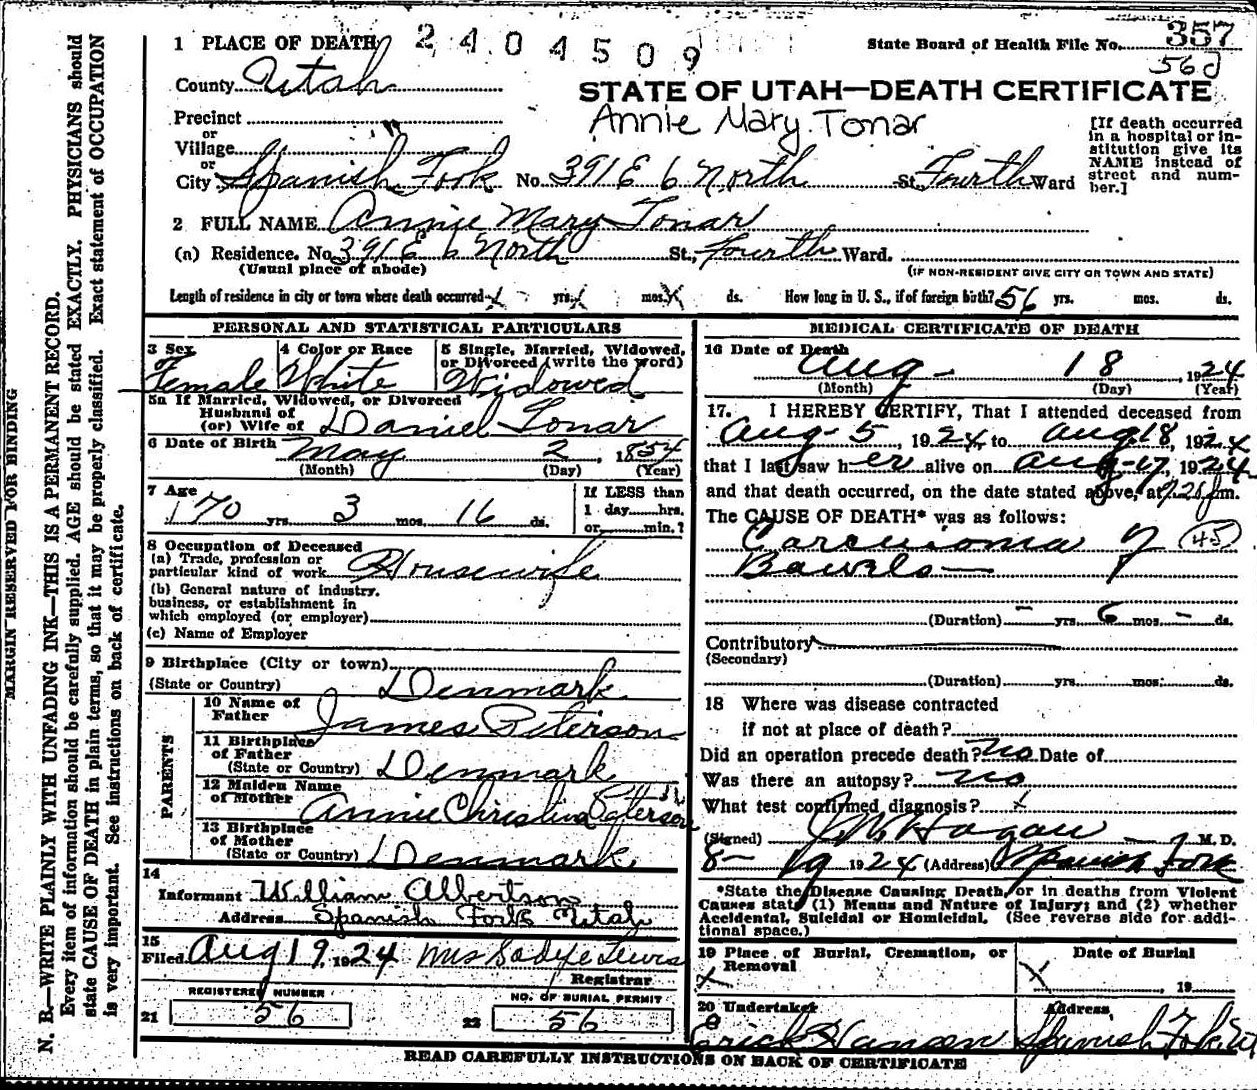 1 PLACE OF DEATH 2404509 State Board of Health File No. 357
County Utah 56d
STATE OF UTAH—DEATH CERTIFICATE
Precinct Annie Mary Tonar
or
Village
or
City Spanish Fork No. 391 E 6 North St. Fourth Ward
[If death occurred
in a hospital or in-
stitution give its
NAME instead of
street and num-
ber.]
2 FULL NAME Annie Mary Tonar
(a) Residence. No. 391 E 6 North St., Fourth Ward.
(Usual place of abode) (IF NON-RESIDENT GIVE CITY OR TOWN AND STATE)
Length of residence in city or town where death occurred x yrs. x mos. x ds. How long in U. S., if of foreign birth? 56 yrs. mos. ds.
PERSONAL AND STATISTICAL PARTICULARS
3 Sex 4 Color or Race 5 Single, Married, Widowed,
or Divorced (write the word)
Female White Widowed
5a If Married, Widowed, or Divorced
Husband of
(or) Wife of Daniel Tonar
6 Date of Birth May 2, 1854
(Month) (Day) (Year)
7 Age If LESS than
170 yrs. 3 mos. 16 ds. 1 day......hrs.
or......min.?
8 Occupation of Deceased
(a) Trade, profession or
particular kind of work Housewife
(b) General nature of industry,
business, or establishment in
which employed (or employer)
(c) Name of Employer
9 Birthplace (City or town)
(State or Country) Denmark
PARENTS
10 Name of
Father James Peterson
11 Birthplace
of Father
(State or Country) Denmark
12 Maiden Name
of Mother Annie Christina Peterson
13 Birthplace
of Mother
(State or Country) Denmark
14
Informant William Albertson
Address Spanish Fork Utah
15
Filed Aug 19, 1924 Mrs Sadye Lewis
Registrar
REGISTERED NUMBER NO. OF BURIAL PERMIT
21 56 22 56
MEDICAL CERTIFICATE OF DEATH
16 Date of Death
Aug - 18, 1924
(Month) (Day) (Year)
17. I HEREBY CERTIFY, That I attended deceased from
Aug - 5, 1924 to Aug 18, 1924
that I last saw her alive on Aug - 17, 1924
and that death occurred, on the date stated above, at m.
The CAUSE OF DEATH* was as follows:
Carcinoma of 45
Bowels
(Duration) - yrs. 6 mos. - ds.
Contributory
(Secondary)
(Duration) yrs. mos. ds.
18 Where was disease contracted
if not at place of death?
Did an operation precede death? no Date of
Was there an autopsy? no
What test confirmed diagnosis? x
(Signed) Hagan M. D.
8 - 19 1924 (Address) Spanish Fork
*State the Disease Causing Death, or in deaths from Violent
Causes state (1) Means and Nature of Injury; and (2) whether
Accidental, Suicidal or Homicidal. (See reverse side for addi-
tional space.)
19 Place of Burial, Cremation, or Date of Burial
Removal
x x , 19
20 Undertaker Address
Hansen Spanish Fork, Ut
READ CAREFULLY INSTRUCTIONS ON BACK OF CERTIFICATE
MARGIN RESERVED FOR BINDING
N. B.—WRITE PLAINLY WITH UNFADING INK—THIS IS A PERMANENT RECORD.
Every item of information should be carefully supplied. AGE should be stated EXACTLY. PHYSICIANS should
state CAUSE OF DEATH in plain terms, so that it may be properly classified. Exact statement of OCCUPATION
is very important. See instructions on back of certificate.